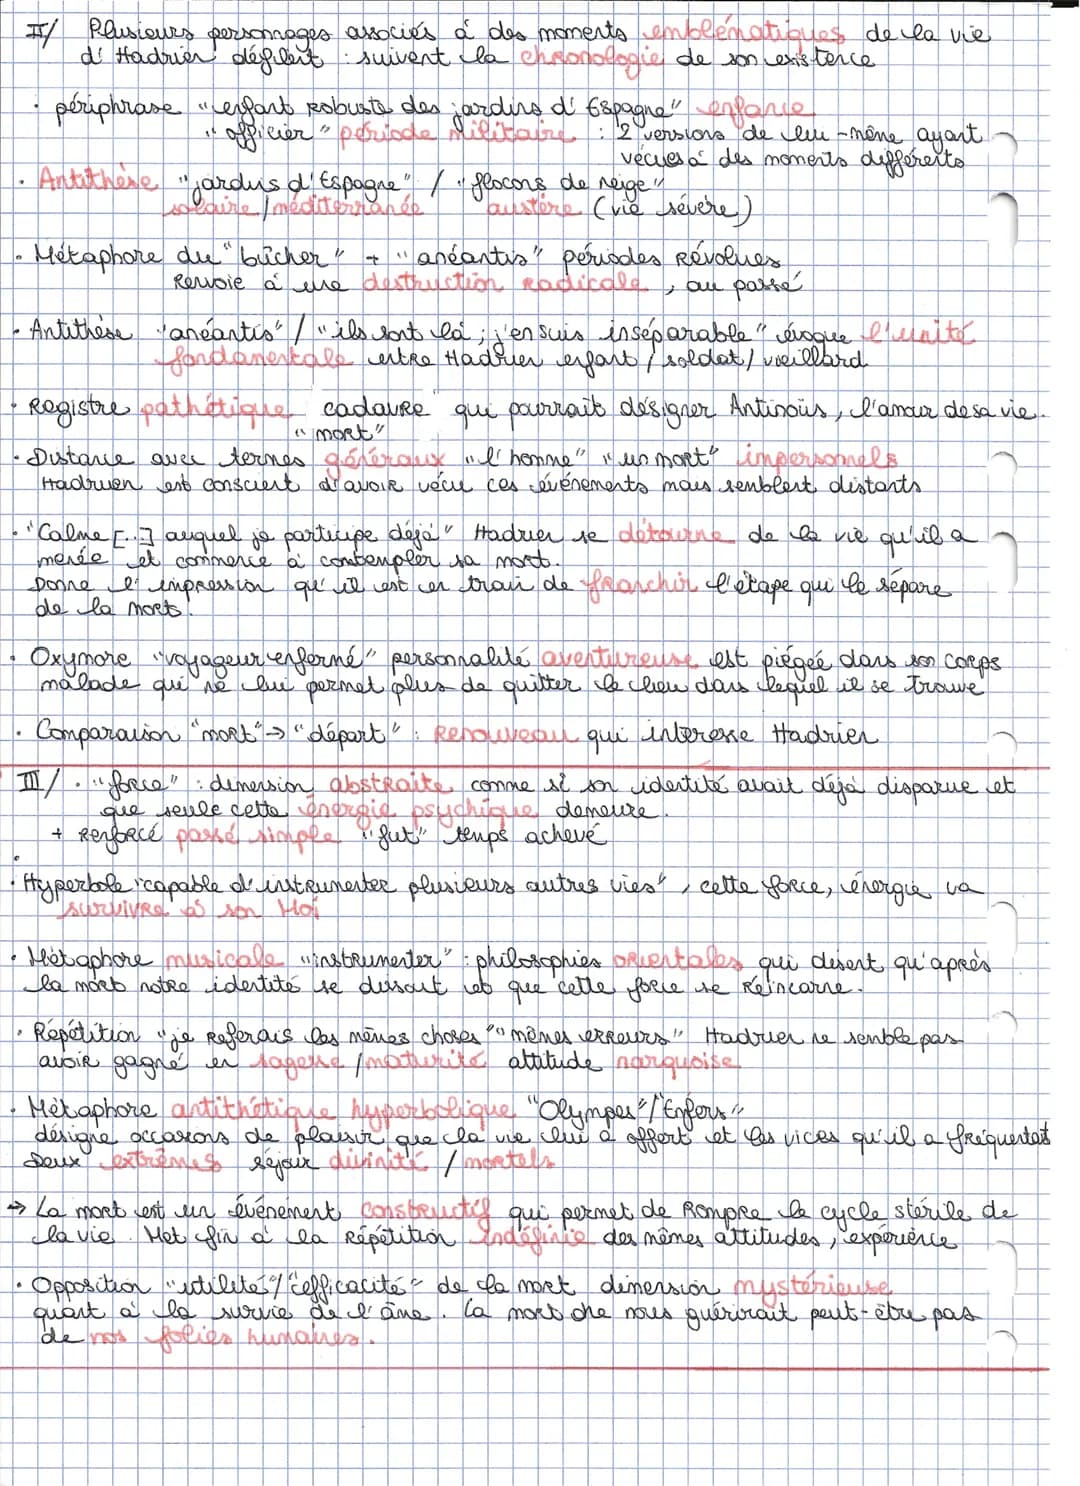 II/ Plusieurs personnages associés à des moments emblématiques de la vie
d'Hadrien défilent : suivent la chronologie de son existence
• périphrase "enfant robuste des jardins d'Espagne" enfance
"officier" période militaire : 2 versions de lui-même ayant
vécues à des moments différents
• Antithèse "jardins d'Espagne" / "flocons de neige"
solaire/méditerranée austère (vie sévère)
• Métaphore du "bûcher" + "anéantis" périodes Révolues
Renvoie à une destruction radicale, au passé
• Antithèse "anéantis" / "ils sont là ; j'en suis inséparable" évoque l'unité
fondamentale entre Hadrien enfant / soldat / vieillard
• Registre pathétique cadavre" qui pourrait désigner Antinoüs, l'amour de sa vie.
"mort"
• Distance avec termes généraux "l'homme" "un mort" impersonnels
Hadrien est conscient d'avoir vécu ces événements mais semblent distants
• "Calme [...] auquel je participe déjà" Hadrien se détourne de la vie qu'il a
menée et commence à contempler sa mort.
Donne l'impression qu'il est en train de franchir l'étape qui le sépare
de la morts.
• Oxymore "voyageur enfermé" personnalité aventureuse est piégée dans son corps
malade qui ne lui permet plus de quitter le lieu dans lequel il se trouve
• Comparaison "mort" → "départ" : Renouveau qui intéresse Hadrien
III/ • "force" : dimension abstraite comme si son identité avait déjà disparue et
que seule cette énergie psychique demeure.
+ Renforcé passé simple "fut" temps achevé
• Hyperbole "capable d'instrumenter plusieurs autres vies", cette force, énergie va
survivre à son Moi
• Métaphore musicale "instrumenter" : philosophies orientales qui disent qu'après
la mort notre identité se dissout et que cette force se Réincarne.
• Répétition "je Referais les mêmes choses" "mêmes erreurs" Hadrien ne semble pas
avoir gagné en sagesse / maturité attitude narquoise
• Métaphore antithétique hyperbolique "Olympes"/"Enfers"
désigne occasions de plaisir que la vie lui a offert et les vices qu'il a fréquentet
Deux extrêmes séjour divinité / mortels
→ La mort est un événement constructif qui permet de Rompre le cycle stérile de
la vie. Met fin à la Répétition indéfinie des mêmes attitudes, expérience
• Opposition "utilité"/"efficacité" de la mort dimension mystérieuse
quant à la survie de l'âme. La mort ne nous guérirait peut-être pas
de nos folies humaines.